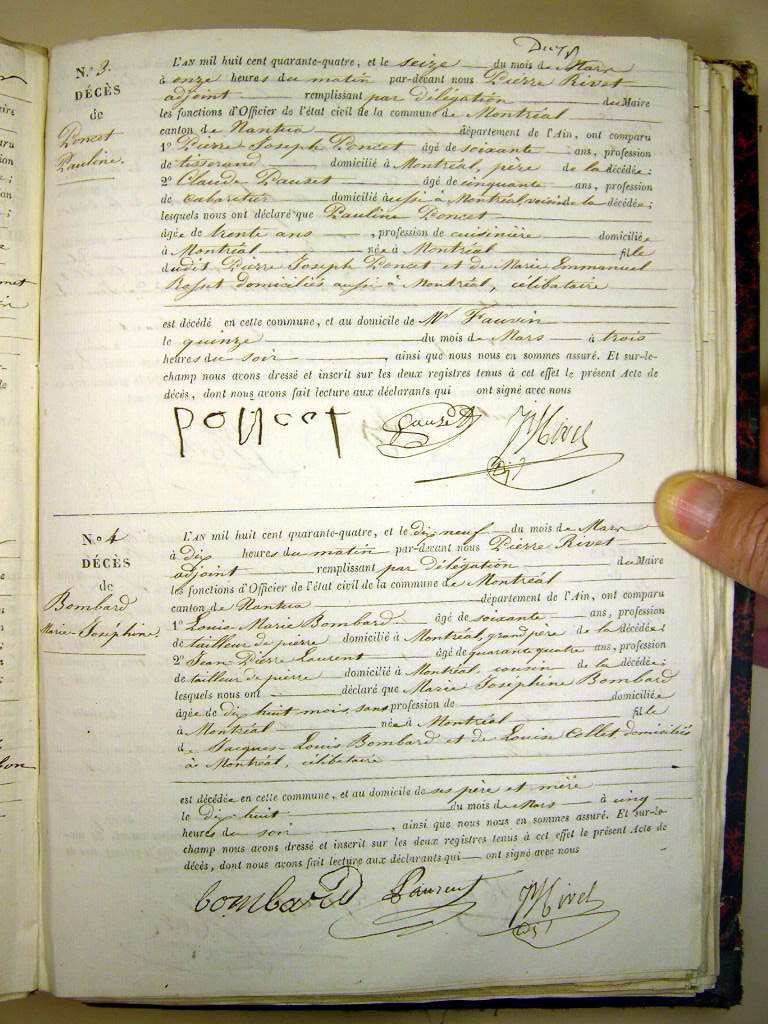 N.º 3.
DÉCÈS
de
Poncet
Pauline.
L'AN mil huit cent quarante-quatre, et le seize du mois de Mars
à onze heures du matin par-devant nous Pierre Rivet
adjoint remplissant par délégation du Maire
les fonctions d'Officier de l'état civil de la commune de Montréal
canton de Nantua département de l'Ain, ont comparu
1º Pierre Joseph Poncet âgé de soixante ans, profession
de tisserand domicilié à Montréal, père de la décédée;
2º Claude Pauset âgé de cinquante ans, profession
de cabaretier domicilié aussi à Montréal, voisin de la décédée;
lesquels nous ont déclaré que Pauline Poncet
âgée de trente ans, profession de cuisinière domiciliée
à Montréal née à Montréal fille
dudit Pierre Joseph Poncet et de Marie Emmanuel
Rosset domiciliés aussi à Montréal, célibataire
est décédé en cette commune, et au domicile de Mr Fauvin
le quinze du mois de Mars à trois
heures du soir, ainsi que nous nous en sommes assuré. Et sur-le-
champ nous avons dressé et inscrit sur les deux registres tenus à cet effet le présent Acte de
décès, dont nous avons fait lecture aux déclarants qui ont signé avec nous
poncet Pauset Rivet
N.º 4
DÉCÈS
de
Bombard
Marie-Joséphine.
L'AN mil huit cent quarante-quatre, et le dix neuf du mois de Mars
à Dix heures du matin par-devant nous Pierre Rivet
adjoint remplissant par délégation du Maire
les fonctions d'Officier de l'état civil de la commune de Montréal
canton de Nantua département de l'Ain, ont comparu
1º Louis-Marie Bombard âgé de soixante ans, profession
de tailleur de pierre domicilié à Montréal, grand père de la décédée;
2º Jean-Pierre Laurent âgé de quarante quatre ans, profession
de tailleur de pierre domicilié à Montréal, cousin de la décédée;
lesquels nous ont déclaré que Marie Joséphine Bombard
âgée de dix huit mois, sans profession de domiciliée
à Montréal née à Montréal fille
de Jacques-Louis Bombard et de Louise Collet domiciliés
à Montréal, célibataire
est décédée en cette commune, et au domicile de ses père et mère
le dix huit du mois de Mars à cinq
heures du soir, ainsi que nous nous en sommes assuré. Et sur-le-
champ nous avons dressé et inscrit sur les deux registres tenus à cet effet le présent Acte de
décès, dont nous avons fait lecture aux déclarants qui ont signé avec nous
bombard Laurent Rivet